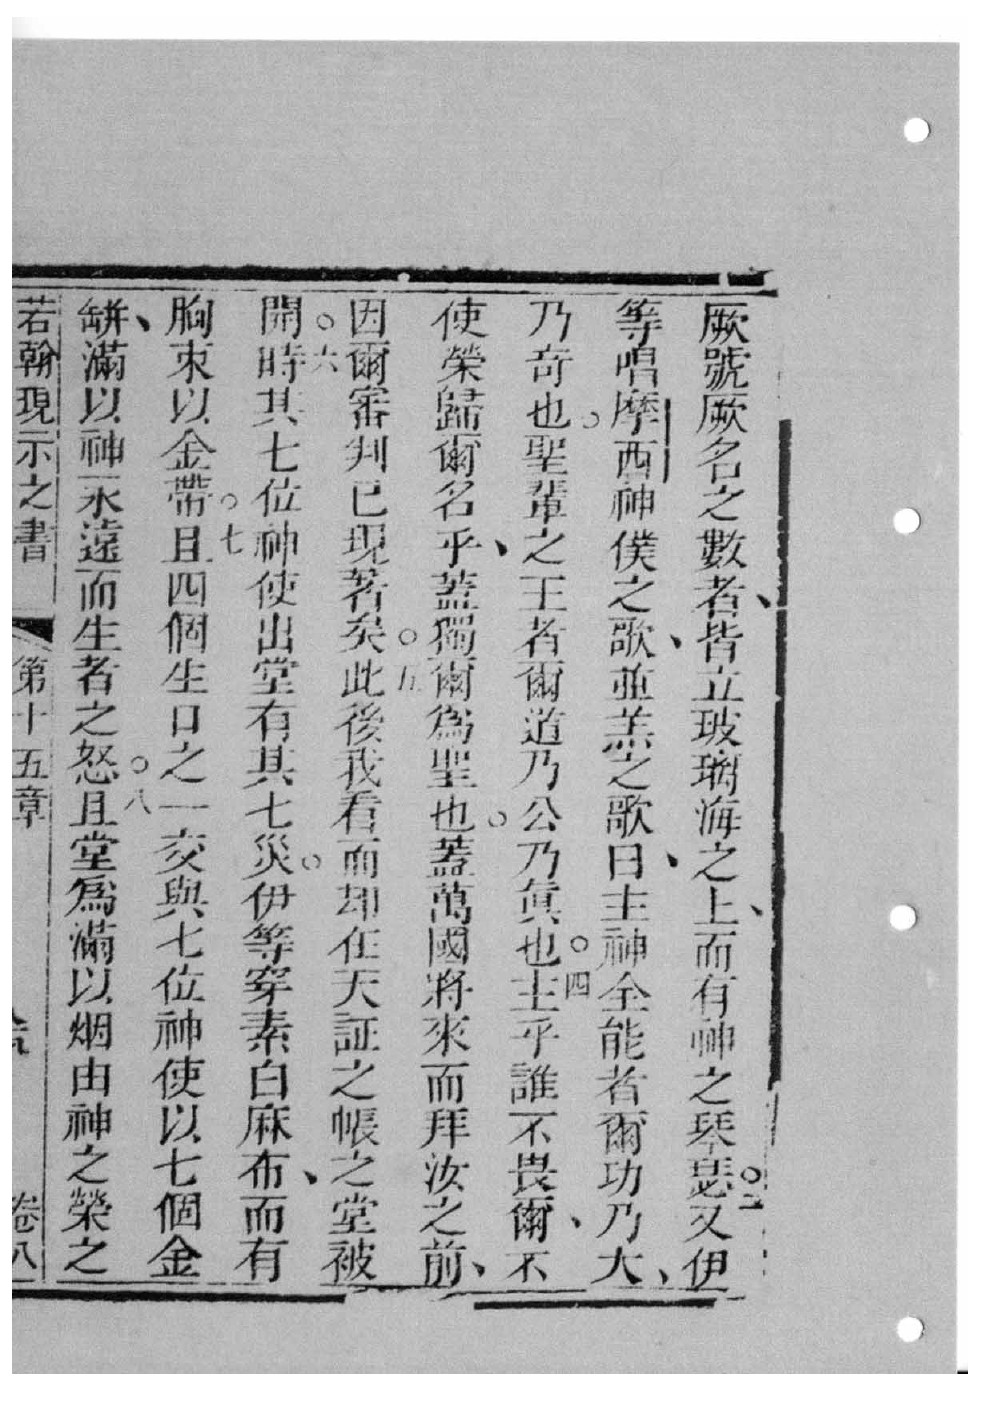 厥號厥名之數者、皆立玻璃海之上、而有神之琴瑟。三又伊
等唱摩西神僕之歌、並羔之歌曰、主神全能者爾功乃大、
乃奇也。聖輩之王者爾道乃公乃眞也。四主乎誰不畏爾、不
使榮歸爾名乎、蓋獨爾爲聖也。蓋萬國將來而拜汝之前、
因爾審判已現著矣。五此後我看而却在天証之帳之堂被
開。六時其七位神使出堂有其七災。伊等穿素白麻布、而有
胸束以金帶。七且四個生口之一交與七位神使以七個金
缾、滿以神永遠而生者之怒。八且堂爲滿以烟由神之榮之
若翰現示之書 第十五章 卷八